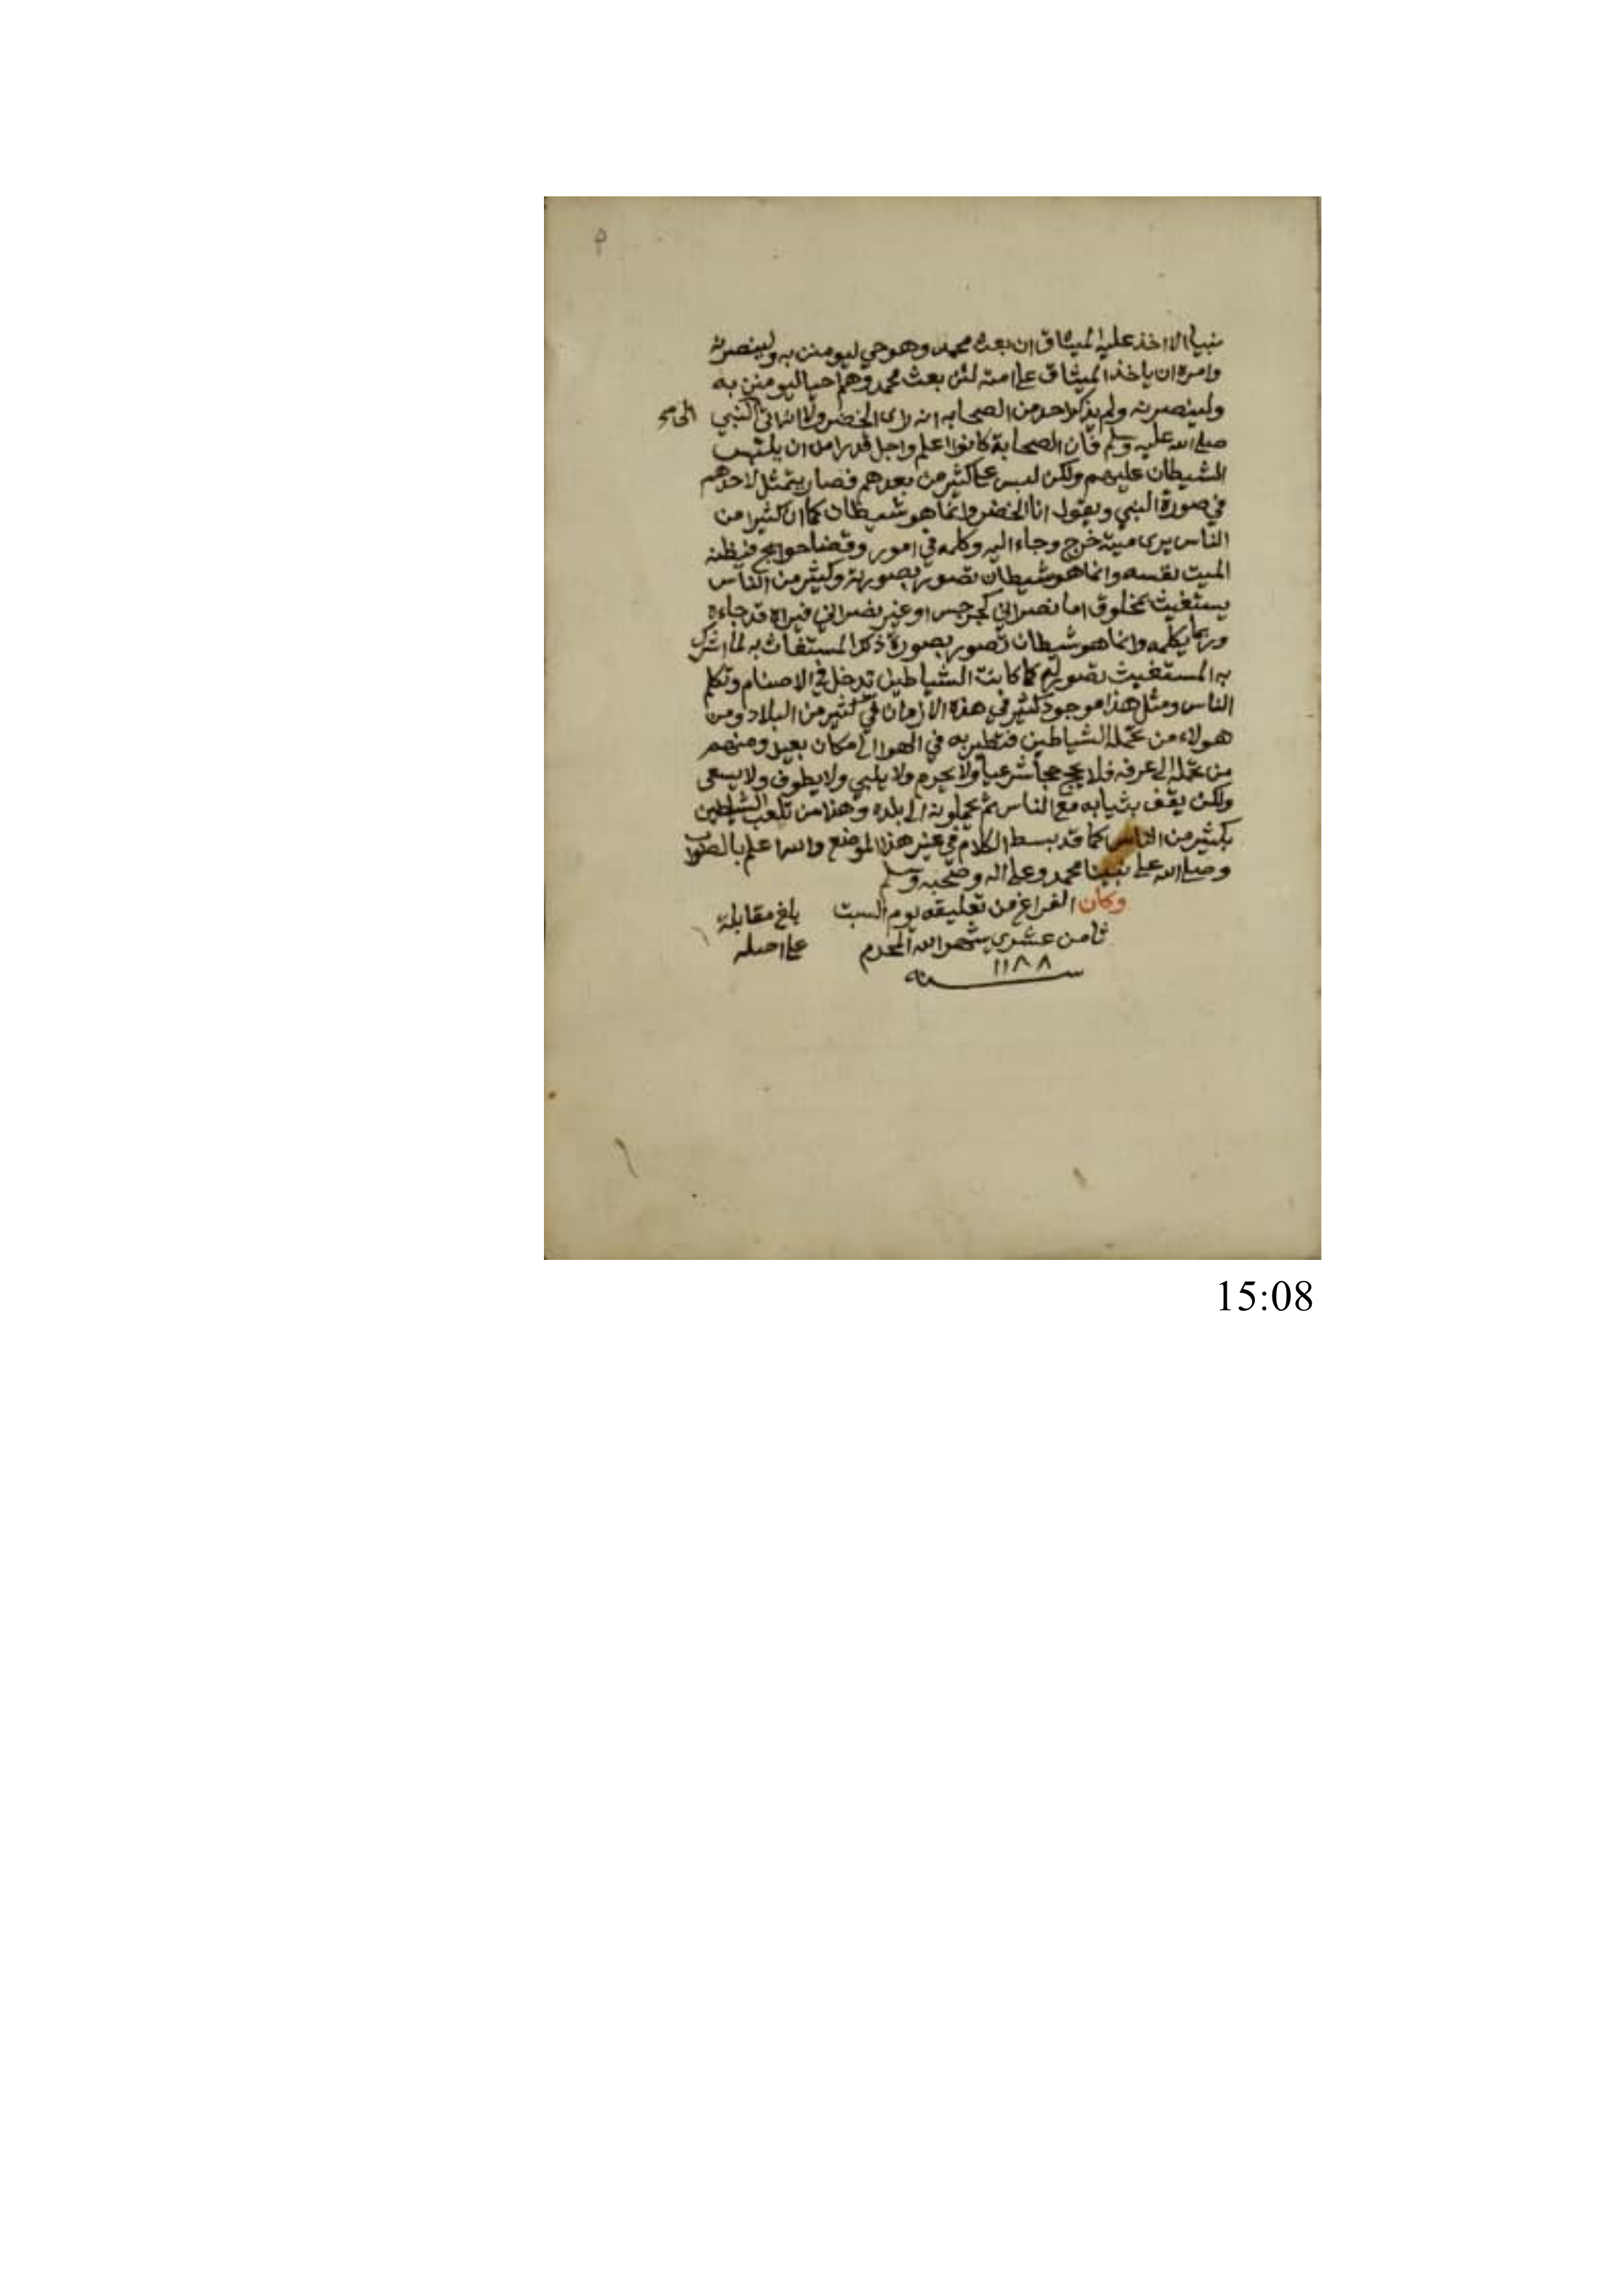 ٥
نبيا الا اخذ عليه الميثاق ان بعث محمد وهو حي ليومنن به ولينصرنه
وامره ان ياخذ الميثاق على امته لئن بعث محمد وهم احيا ليومنن به
ولينصرنه ولم يذكر احد من الصحابه انه راى الخضر ولا انه اتى النبي
صلى الله عليه وسلم فان الصحابة كانوا اعلم واجل قدرا من ان يلتبس
الشيطان عليهم ولكن لبس على كثير من بعدهم فصار يتمثل لاحدهم
في صورة النبي ويقول انا الخضر وانما هو شيطان كما ان كثيرا من
الناس يرى ميته خرج وجاء اليه وكلمه في امور وقضا حوايج فيظنه
الميت نفسه وانما هو شيطان تصور بصورته وكثير من الناس
يستغيث بمخلوق اما نصراني كجرجس او غير نصراني فيراه قد جاءه
وربما يكلمه وانما هو شيطان تصور بصورة ذكر المستغاث به لما اشرك
به المستغيث تصور له كما كانت الشياطين تدخل في الاصنام وتكلم
الناس ومثل هذا موجود كثير في هذه الازمان في كثير من البلاد ومن
هولاء من تحمله الشياطين فتطير به في الهوا الى مكان بعيد ومنهم
من تحمله الى عرفه فلا يحج حجا شرعيا ولا يحرم ولا يلبي ولا يطوف ولا يسعى
ولكن يقف بثيابه مع الناس ثم يحملونه الى بلده وهذا من تلعب الشياطين
بكثير من الناس كما قد بسط الكلام في غير هذا الموضع والله اعلم بالصواب
وصلى الله على نبينا محمد وعلى اله وصحبه وسلم
وكان الفراغ من تعليقه يوم السبت
ثامن عشري شهر الله المحرم
١١٨٨
سنه
بلغ مقابلة
على اصله
15:08